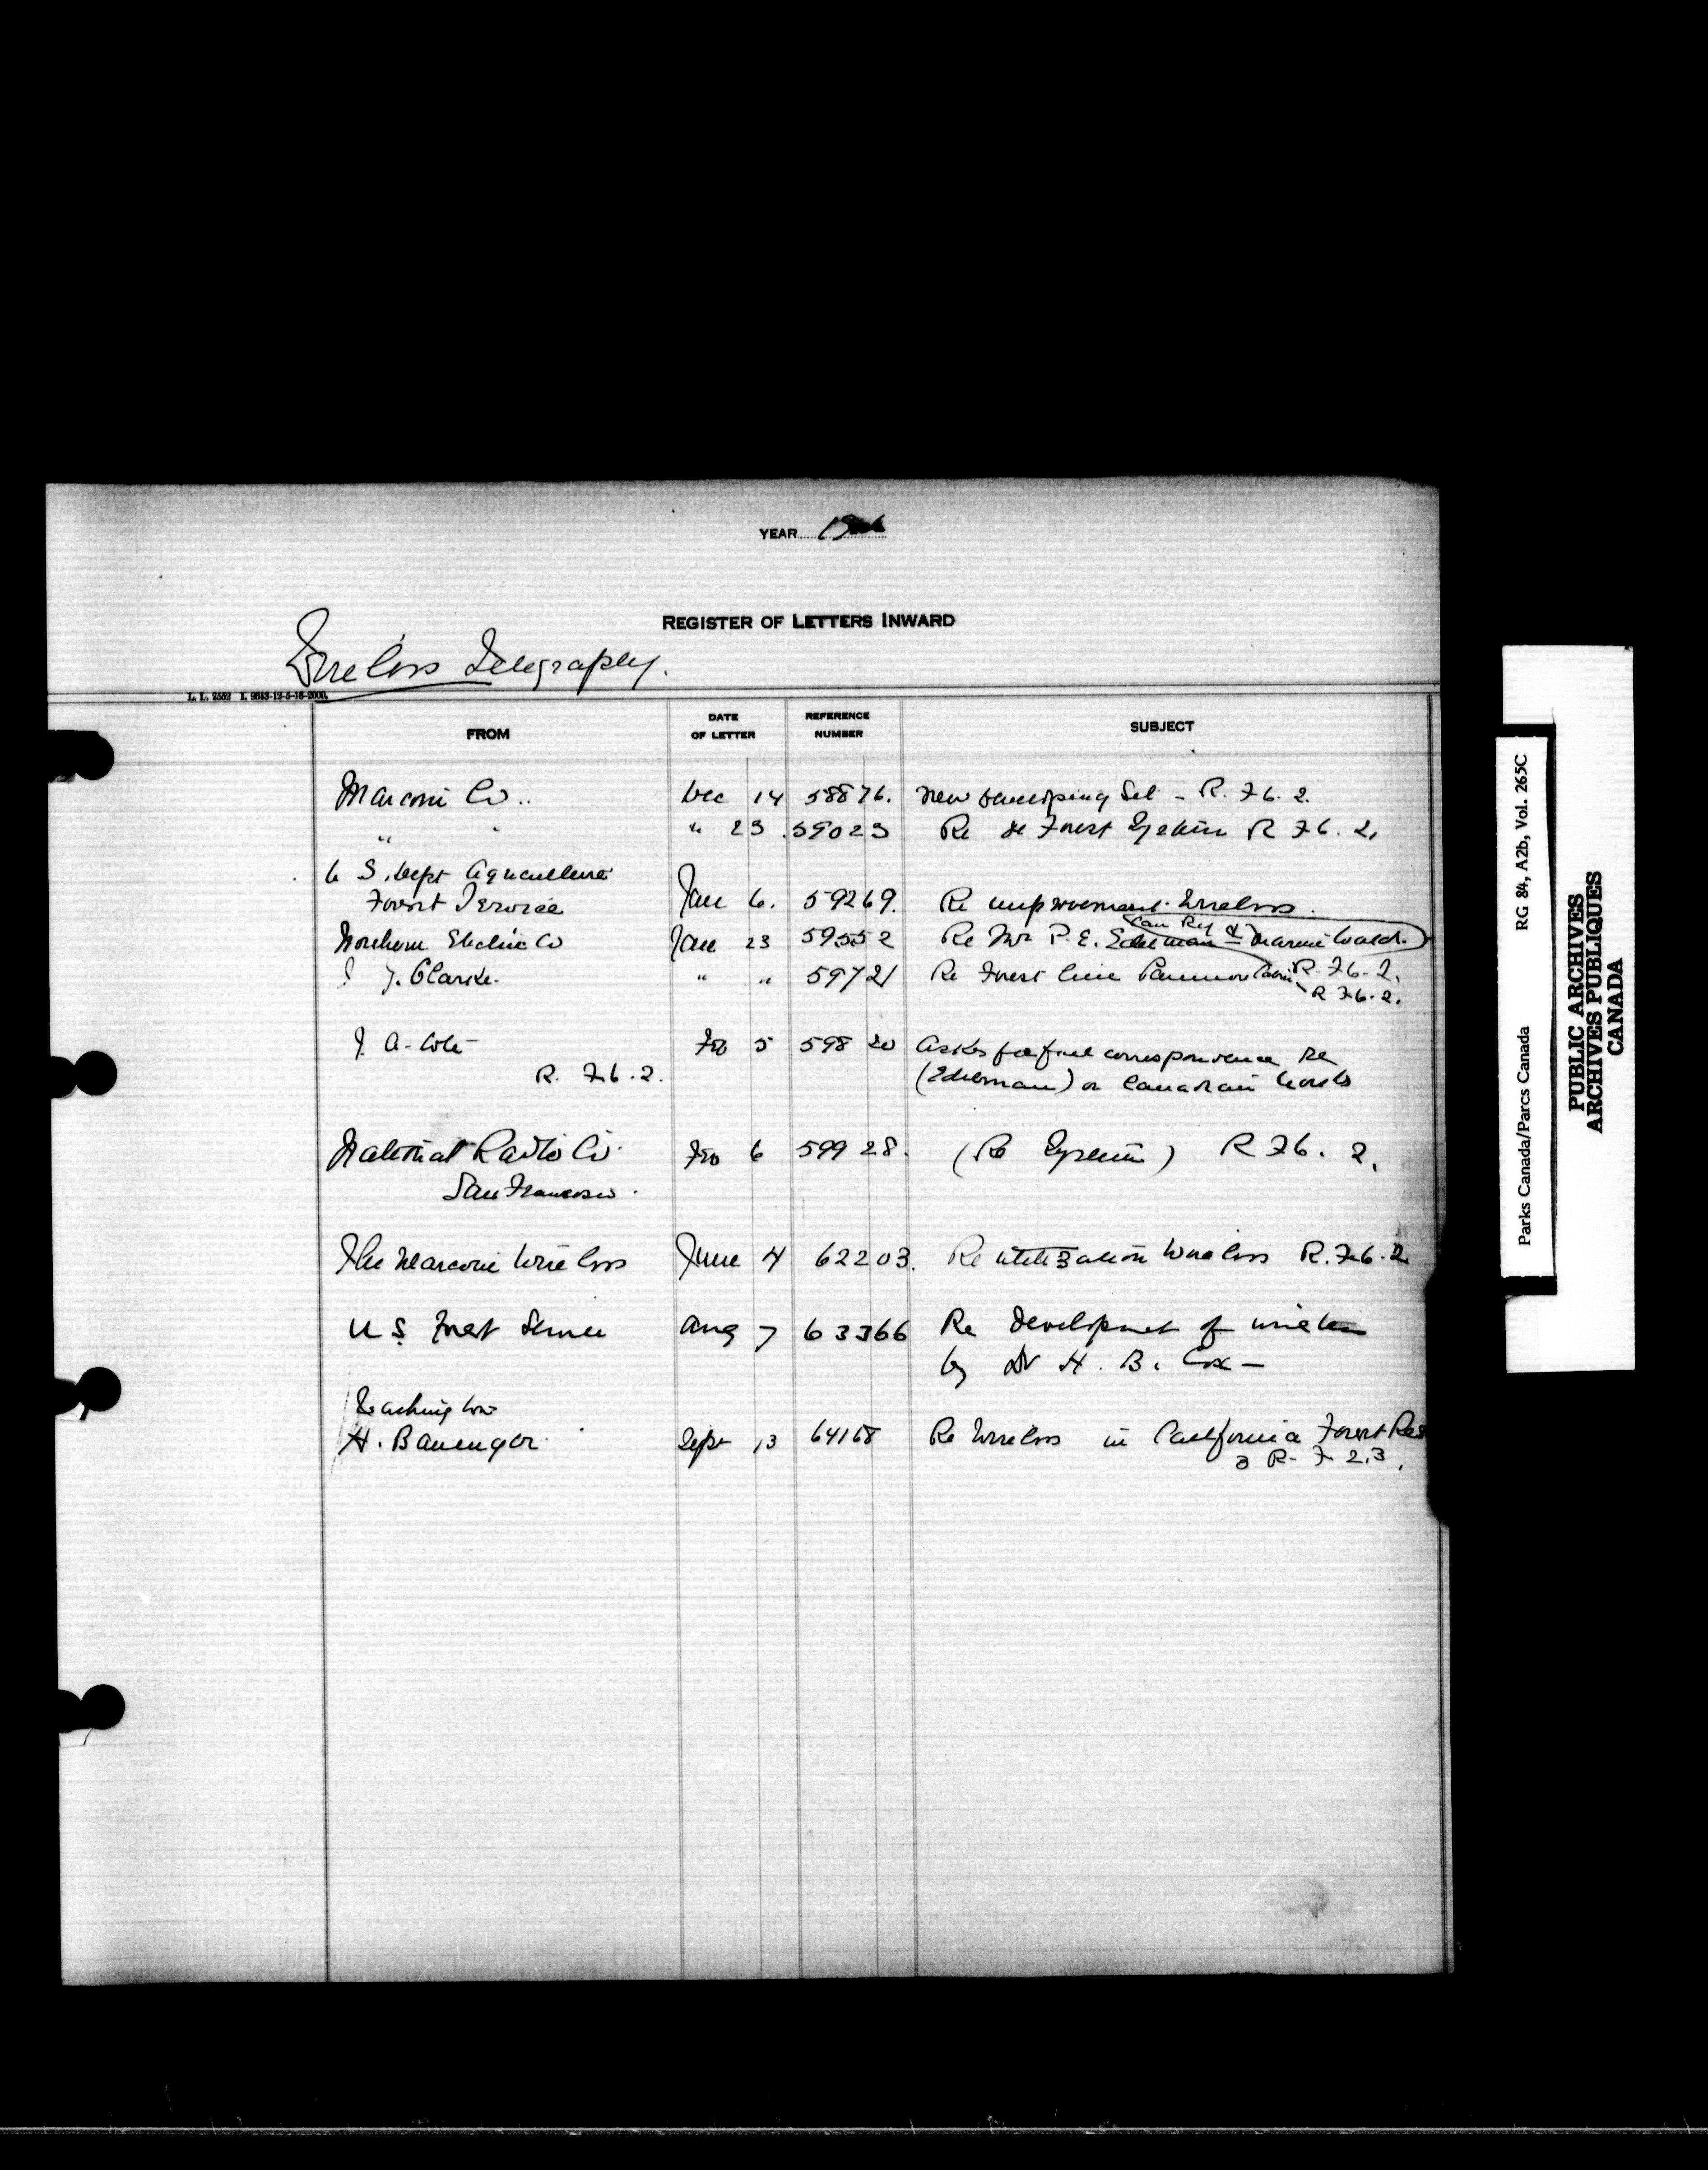 YEAR 19
REGISTER OF LETTERS INWARD
Wireless Telegraphy.
L. L. 2552 I. 9843-12-5-16-2000.
FROM DATE OF LETTER REFERENCE NUMBER SUBJECT
Marconi Co.. Dec 14 58876. New developing Set - R. F6. 2.
" " " 23 .59023 Re de Forest System R F6. 2.
U S. Dept Agriculture
Forest Service Jan 6. 59269. Re improvement Wireless.
Northern Electric Co Jan 23 59552 Re Mr P. E. Edelman = Marine Coast.
J. Clarke. " " 59721 Re Forest line R. F6. 2.
R F6. 2.
J. A. Cote Feb 5 59820 Asks for correspondence Re
R. F6. 2. (Edelman) on Canadian
National Radio Co. Feb 6 59928. (Re System) R F6. 2.
San Francisco.
The Marconi Wireless June 4 62203. Re utilization Wireless R. F6. 2
U S Forest Service Aug 7 63366 Re Development of wireless
by Dr H. B. Cox -
Washington
H. Sept 13 64168 Re Wireless in California Forest Res
R- F 2.3.
Parks Canada/Parcs Canada RG 84, A2b, Vol. 265C
PUBLIC ARCHIVES
ARCHIVES PUBLIQUES
CANADA